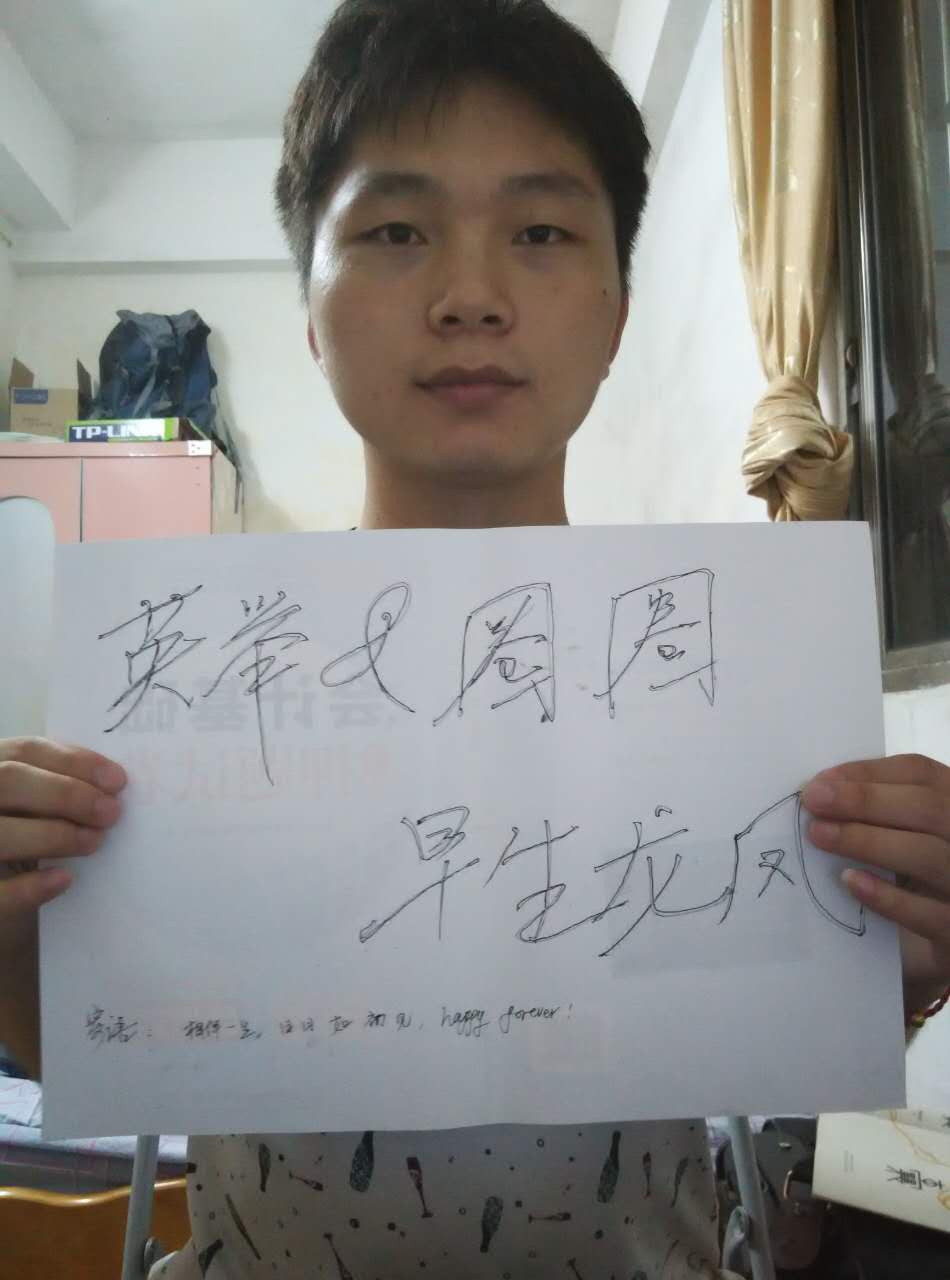 TP-LINK
英举 & 圈圈
早生龙凤
寄语：相伴一生，日日如初见，happy forever！